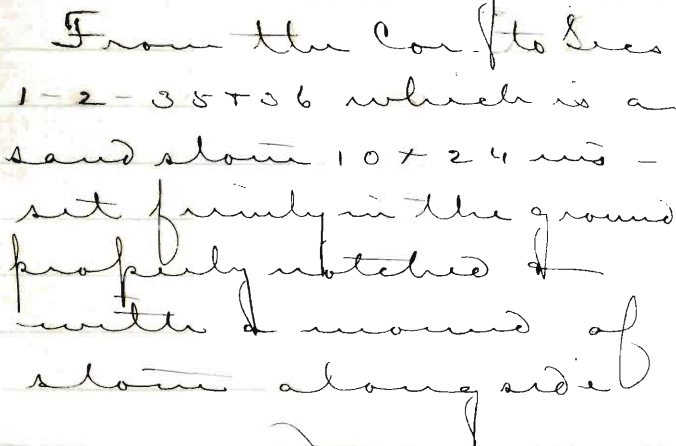 From the Cor. to Secs
1-2-35+36 which is a
sand stone 10 x 24 ins -
set firmly in the ground
properly notched &
with a mound of
stone alongside